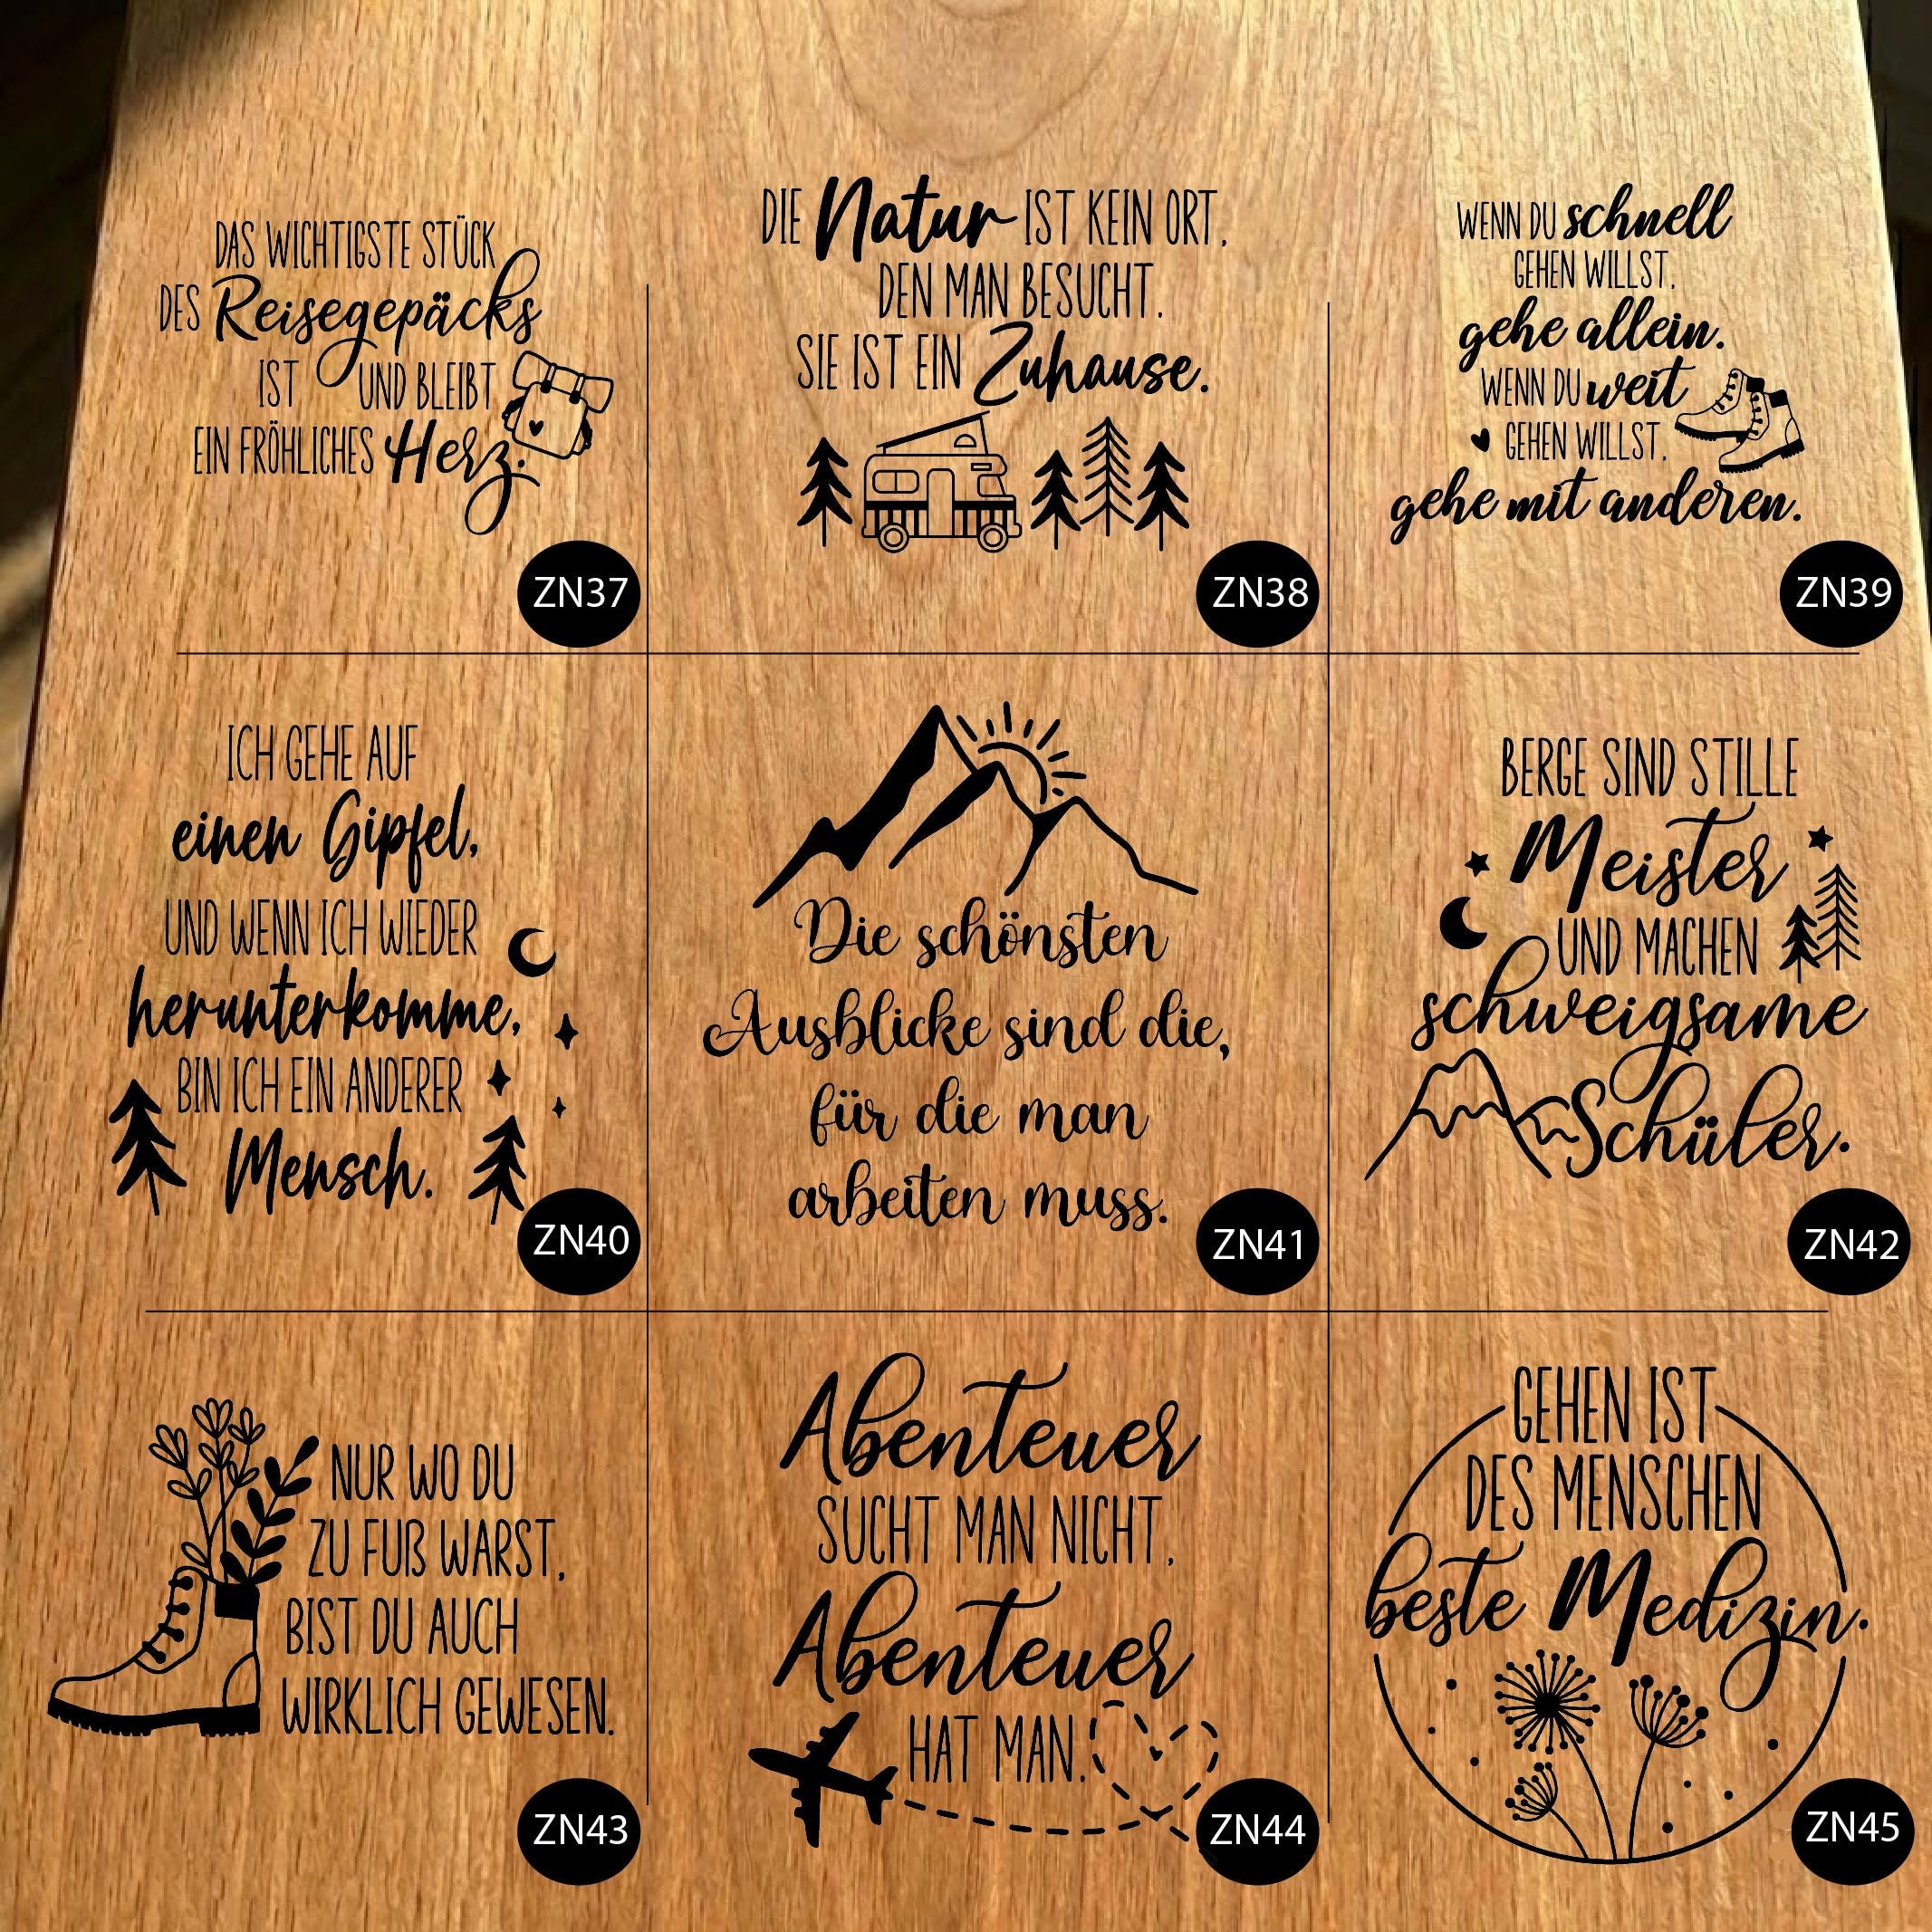 DAS WICHTIGSTE STÜCK
DES Reisegepäcks
IST UND BLEIBT
EIN FRÖHLICHES Herz.
ZN37
DIE Natur IST KEIN ORT,
DEN MAN BESUCHT.
SIE IST EIN Zuhause.
ZN38
WENN DU schnell
GEHEN WILLST,
gehe allein.
WENN DU weit
GEHEN WILLST,
gehe mit anderen.
ZN39
ICH GEHE AUF
einen Gipfel,
UND WENN ICH WIEDER
herunterkomme,
BIN ICH EIN ANDERER
Mensch.
ZN40
Die schönsten
Ausblicke sind die,
für die man
arbeiten muss.
ZN41
BERGE SIND STILLE
Meister
UND MACHEN
schweigsame
Schüler.
ZN42
NUR WO DU
ZU FUß WARST,
BIST DU AUCH
WIRKLICH GEWESEN.
ZN43
Abenteuer
SUCHT MAN NICHT,
Abenteuer
HAT MAN.
ZN44
GEHEN IST
DES MENSCHEN
beste Medizin.
ZN45